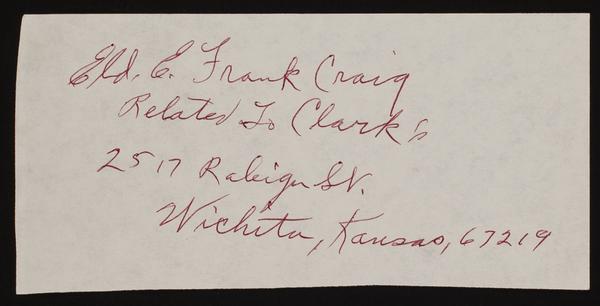 Eld. E. Frank Craig
Related To Clark's
2517 Raleigh St.
Wichita, Kansas, 67219